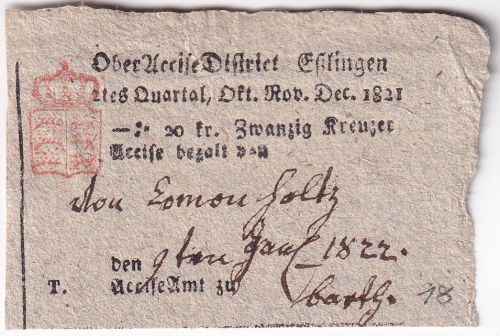 OberAcciseDistrict Eßlingen
2tes Quartal, Okt. Nov. Dec. 1821
—:- 20 kr. Zwanzig Kreuzer
Accise bezalt von
von Holtz
den 9ten Jan 1822.
T. AcciseAmt zu
18